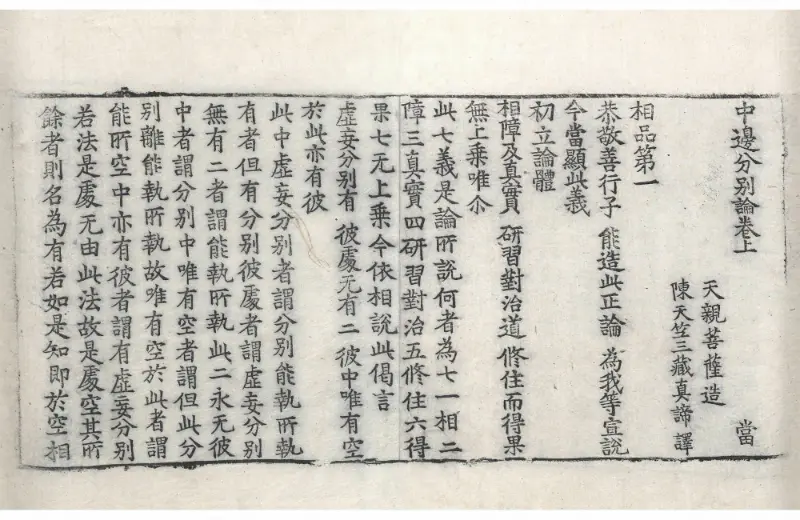 中邊分別論卷上
當
天親菩薩造
陳天竺三藏真諦譯
相品第一
恭敬善行子 能造此正論 為我等宣說
今當顯此義
初立論體
相障及真實 研習對治道 修住而得果
無上乘唯尒
此七義是論所說何者為七一相二
障三真實四研習對治五修住六得
果七无上乘今依相說此偈言
虛妄分別有 彼處无有二 彼中唯有空
於此亦有彼
此中虛妄分別者謂分別能執所執
有者但有分別彼處者謂虛妄分別
無有二者謂能執所執此二永无彼
中者謂分別中唯有空者謂但此分
別離能執所執故唯有空於此者謂
能所空中亦有彼者謂有虛妄分別
若法是處无由此法故是處空其所
餘者則名為有若如是知即於空相